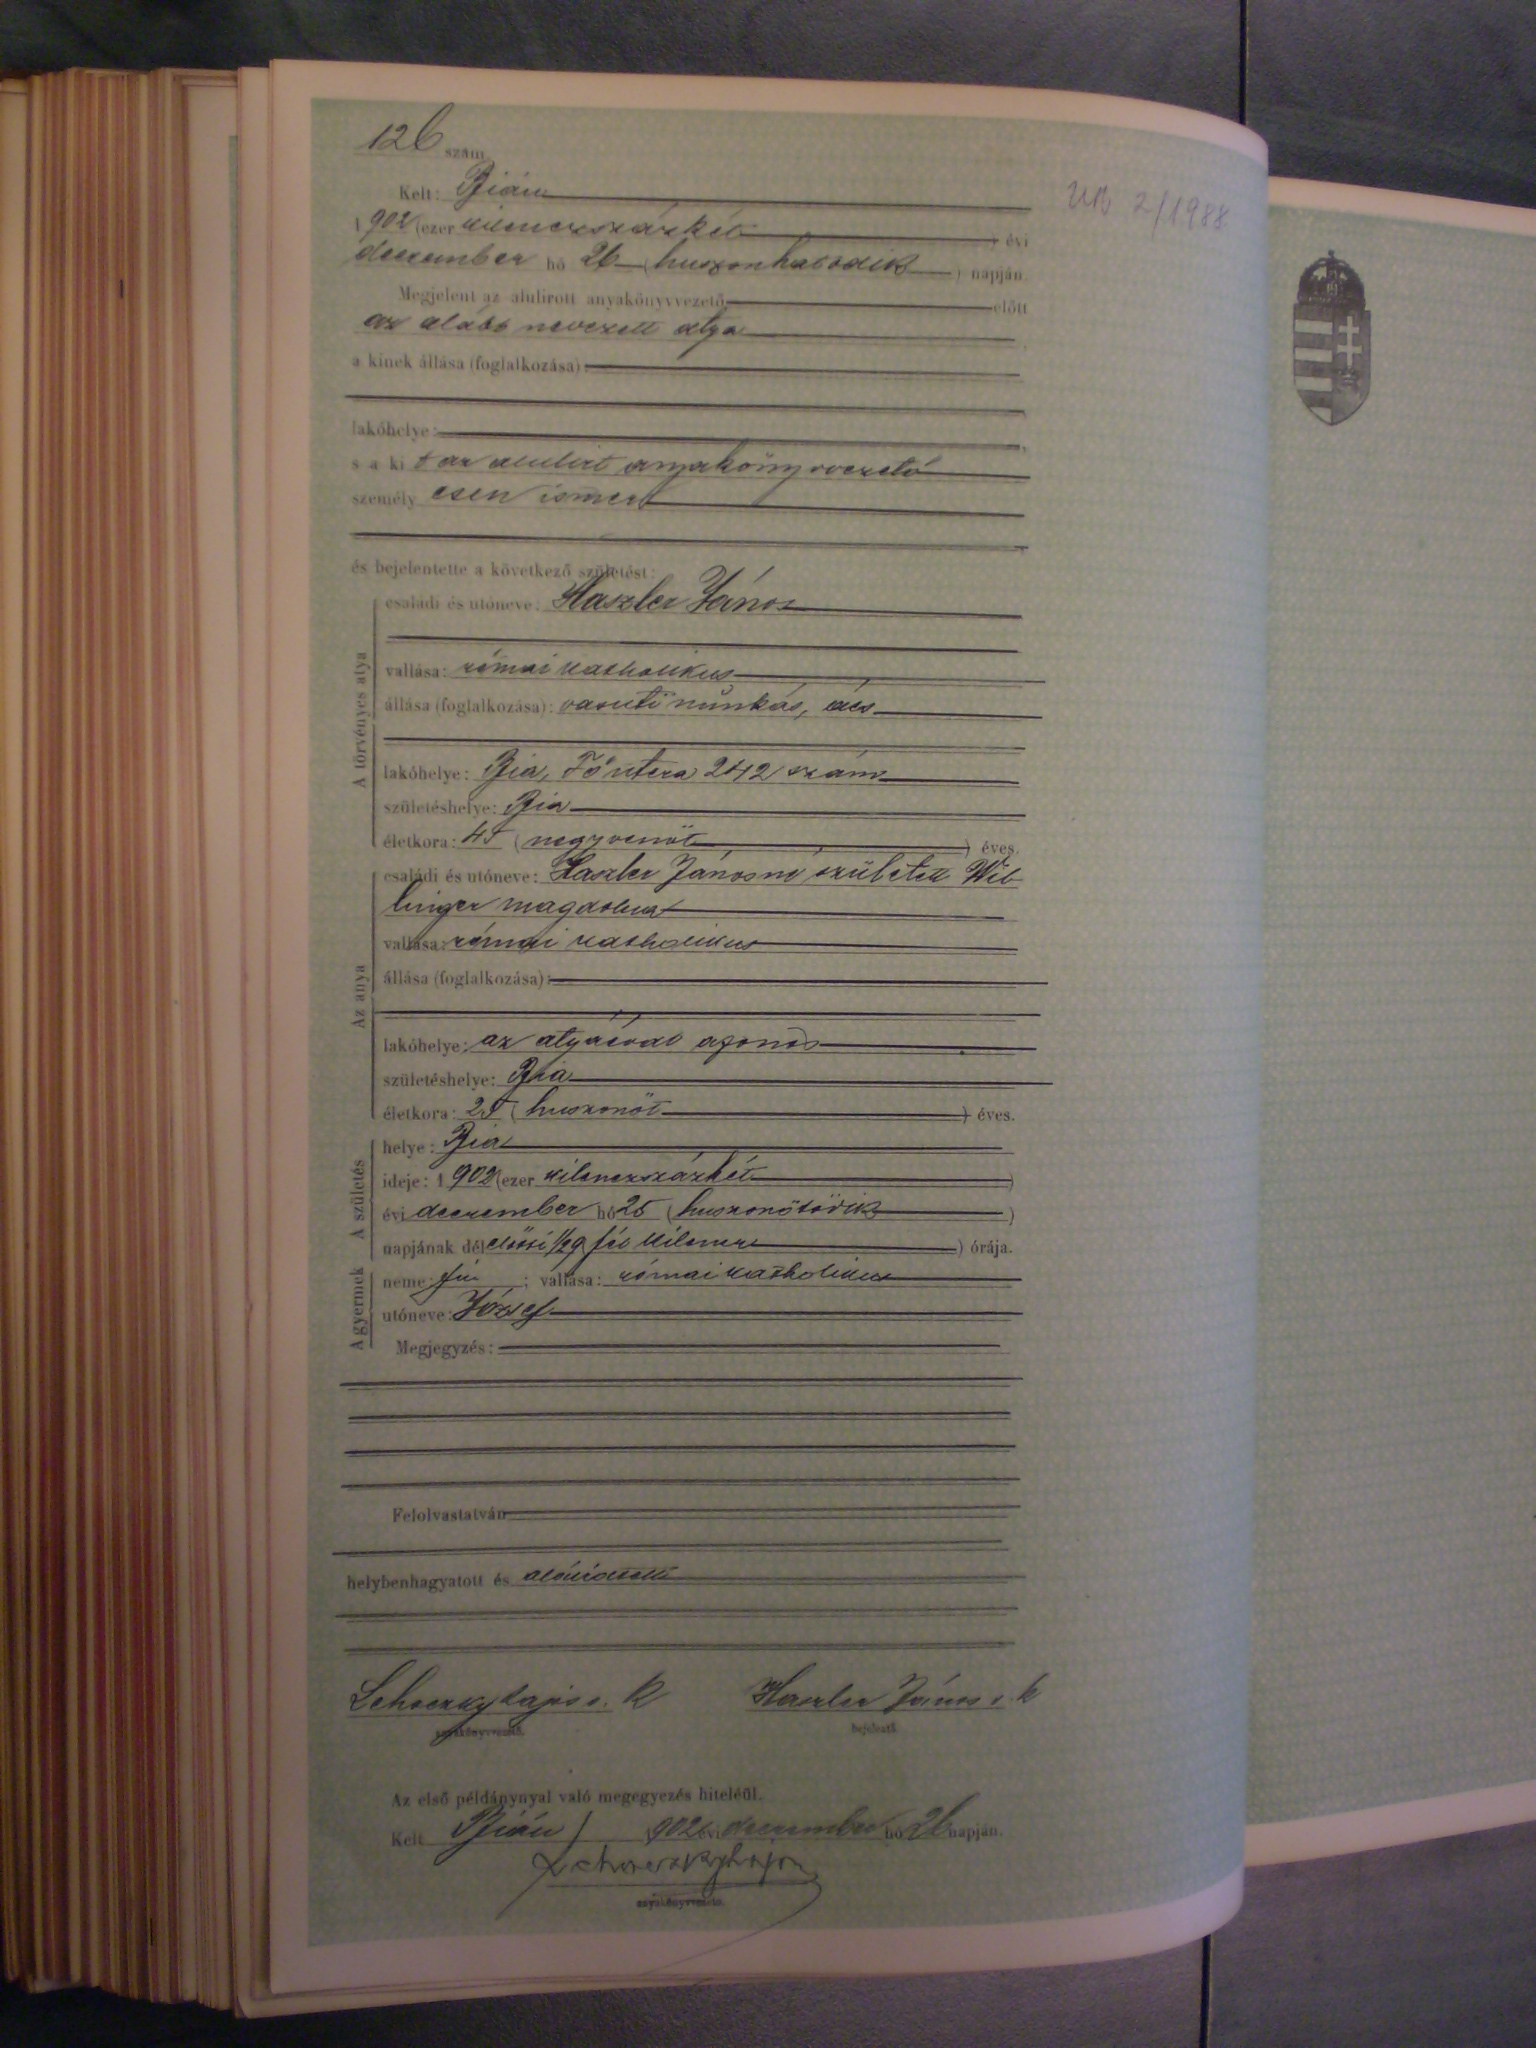 126 szám
Kelt: Bián
1902 (ezer kilenczszázkét) évi
deczember hó 26 (huszonhatodik) napján.
Megjelent az alulirott anyakönyvvezető előtt
az alább nevezett atya
a kinek állása (foglalkozása)
lakóhelye:
s a ki t az alulirt anyakönyvvezető
személy esen ismert
és bejelentette a következő születést:
A törvényes atya
családi és utóneve: Haszler János
vallása: római katholikus
állása (foglalkozása): vasuti munkás, ács
lakóhelye: Bia, Fő utcza 242 szám
születéshelye: Bia
életkora: 45 (negyvenöt) éves.
Az anya
családi és utóneve: Haszler Jánosné született
linger Magdolna
vallása: római katholikus
állása (foglalkozása):
lakóhelye: az atyáéval azonos
születéshelye: Bia
életkora: 25 (huszonöt) éves.
A születés
helye: Bia
ideje: 1902 (ezer kilenczszázkét)
évi deczember hó 25 (huszonötödik)
napjának dél előtti 1/29 fél kilencz) órája.
A gyermek
neme: fiu; vallása: római katholikus
utóneve: József
Megjegyzés:
Felolvastatván
helybenhagyatott és aláíratott
Lehoczky Lajos s. k
Haszler János s. k
anyakönyvvezető.
bejelentő.
Az első példánynyal való megegyezés hiteléül.
Kelt Bián 1902 évi deczember hó 26 napján.
Lehoczky Lajos
anyakönyvvezető.
2/1988